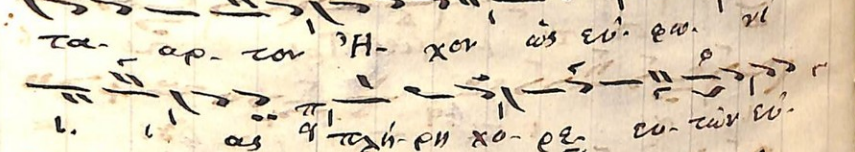 τα- αρ- τον Ἦ- χον ὡς εὐ- φω- νί
ι. ι, ας πλή- ρη χο- ρε- ευ- τῶν εὐ-